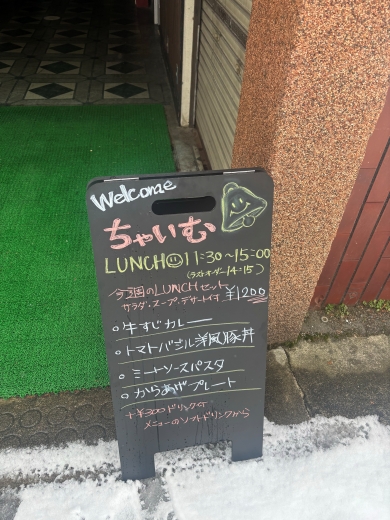 Welcome
ちゃいむ
LUNCH 11:30~15:00
(ラストオーダー14:15)
今週のLUNCHセット ¥1200
サラダ・スープ・デザート付
・牛すじカレー
・トマトバジル洋風豚丼
・ミートソースパスタ
・からあげプレート
+¥300ドリンク付
メニューのソフトドリンクから